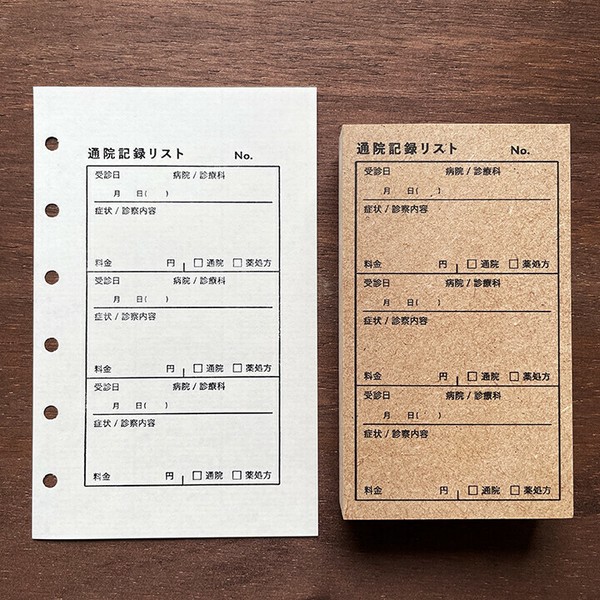 通院記録リスト No.
受診日 病院 / 診療科
月 日( )
症状 / 診察内容
料金 円 □ 通院 □ 薬処方
受診日 病院 / 診療科
月 日( )
症状 / 診察内容
料金 円 □ 通院 □ 薬処方
受診日 病院 / 診療科
月 日( )
症状 / 診察内容
料金 円 □ 通院 □ 薬処方
通院記録リスト No.
受診日 病院 / 診療科
月 日( )
症状 / 診察内容
料金 円 □ 通院 □ 薬処方
受診日 病院 / 診療科
月 日( )
症状 / 診察内容
料金 円 □ 通院 □ 薬処方
受診日 病院 / 診療科
月 日( )
症状 / 診察内容
料金 円 □ 通院 □ 薬処方